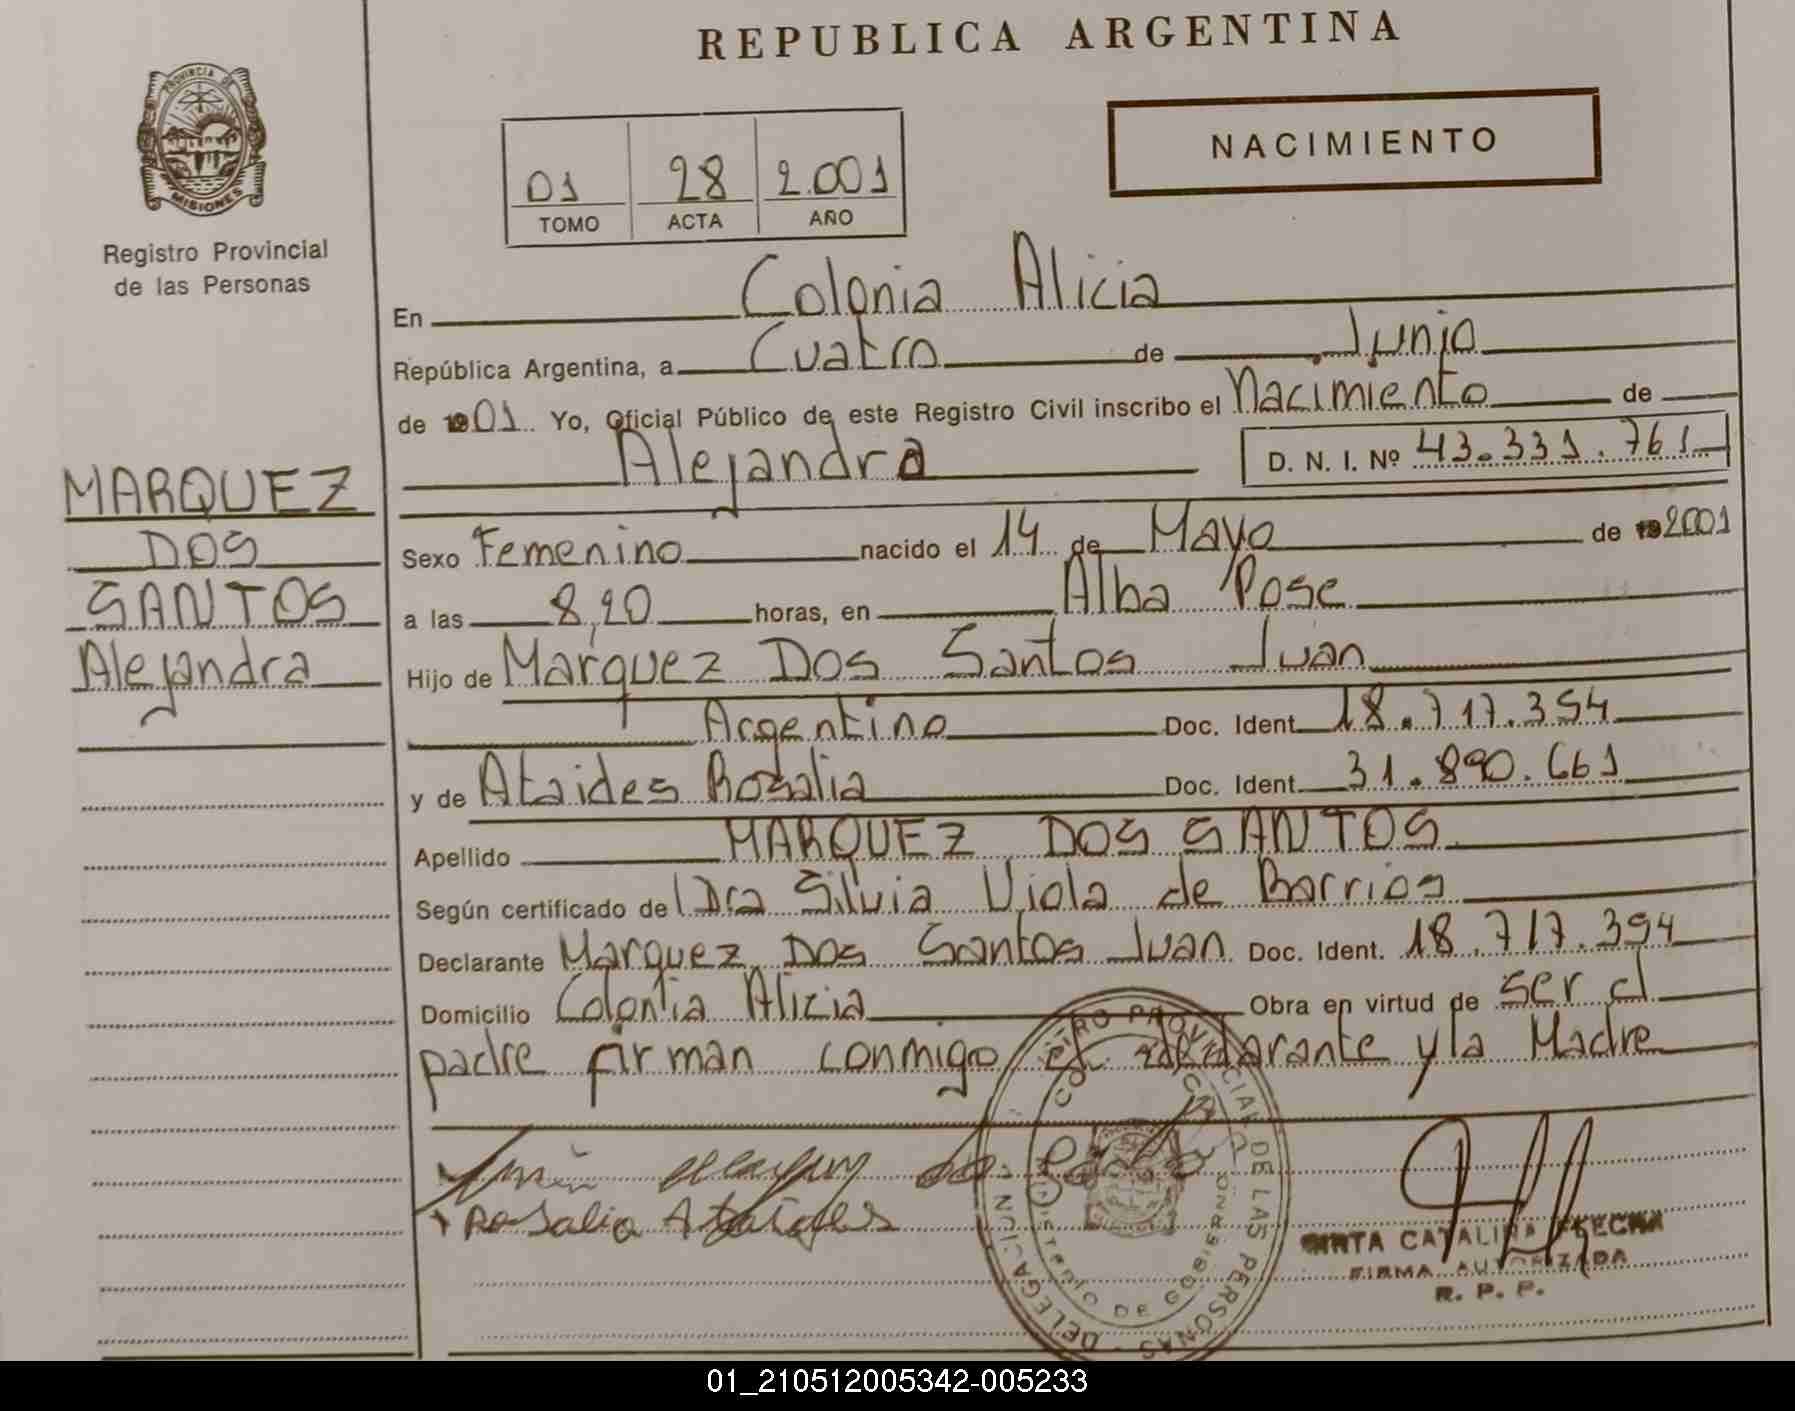 REPUBLICA ARGENTINA
PROVINCIA DE
MISIONES
Registro Provincial
de las Personas
NACIMIENTO
01 28 2.001
TOMO ACTA AÑO
En Colonia Alicia
República Argentina, a Cuatro de Junio
de 1901 Yo, Oficial Público de este Registro Civil inscribo el Nacimiento de
Alejandra D. N. I. Nº 43.331.761
MARQUEZ
DOS
SANTOS
Alejandra
Sexo Femenino nacido el 14 de Mayo de 192001
a las 8,20 horas, en Alba Pose
Hijo de Marquez Dos Santos Juan
Argentino Doc. Ident. 18.717.394
y de Ataides Rosalia Doc. Ident. 31.890.661
Apellido MARQUEZ DOS SANTOS
Según certificado de Dra Silvia Viola de Barrios
Declarante Marquez Dos Santos Juan Doc. Ident. 18.717.394
Domicilio Colonia Alicia Obra en virtud de ser el
padre firman conmigo el declarante y la Madre
Rosalia Ataides
REGISTRO PROVINCIAL DE LAS PERSONAS - DELEGACION
MINISTERIO DE GOBIERNO
MIRTA CATALINA FLECHA
FIRMA AUTORIZADA
R. P. P.
01_210512005342-005233